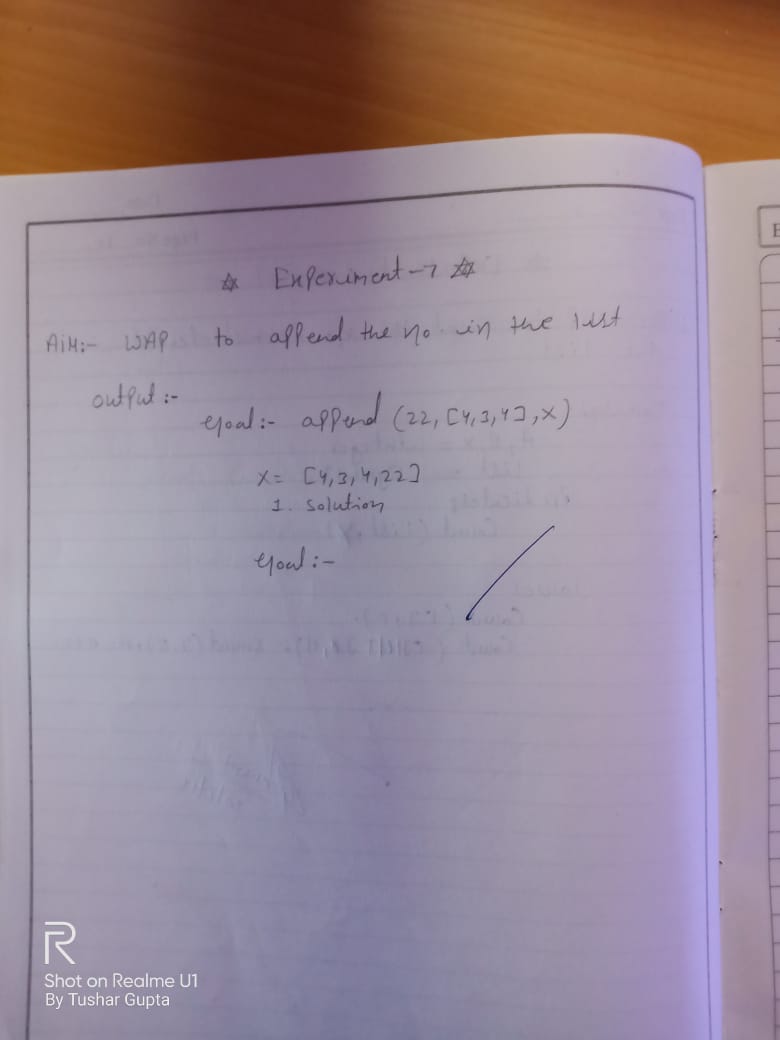 ☆ Experiment-7 ☆
AiM:- WAP to append the no in the list
output:-
Goal:- append (22, [4,3,4],X)
X= [4,3,4,22]
1. solution
Goal:-
R
Shot on Realme U1
By Tushar Gupta
E